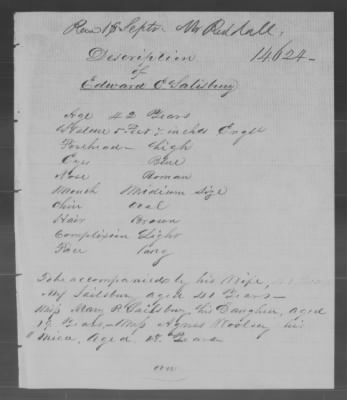 Rec 18 Septr. Mr Riddall,
Description 14.624-
of
Edward C Salisbury
Age 42 Years
Stature 5 Feet 7 inches Engl
Forehead - high
Eyes Blue
Nose Roman
Mouth Midium Size
Chin oval
Hair Brown
Complexion Light
Face Long
To be accompanied by his Wife,
aged 41 Years -
Miss Mary R Sailsbury, his Daughter, aged
19 Years - Miss Agnes Woolsey his
Niece, Aged 18 Years